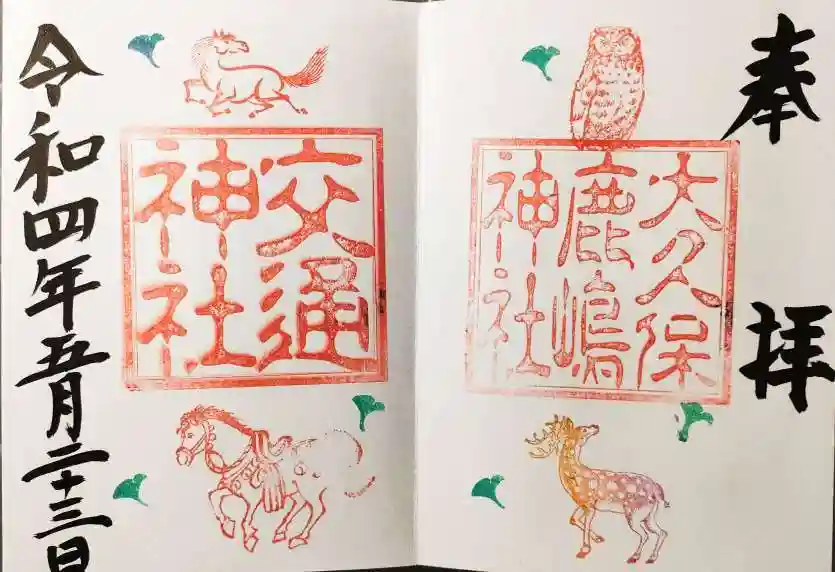 奉拝
大久保
鹿嶋
神社
交通
神社
令和四年五月二十三日